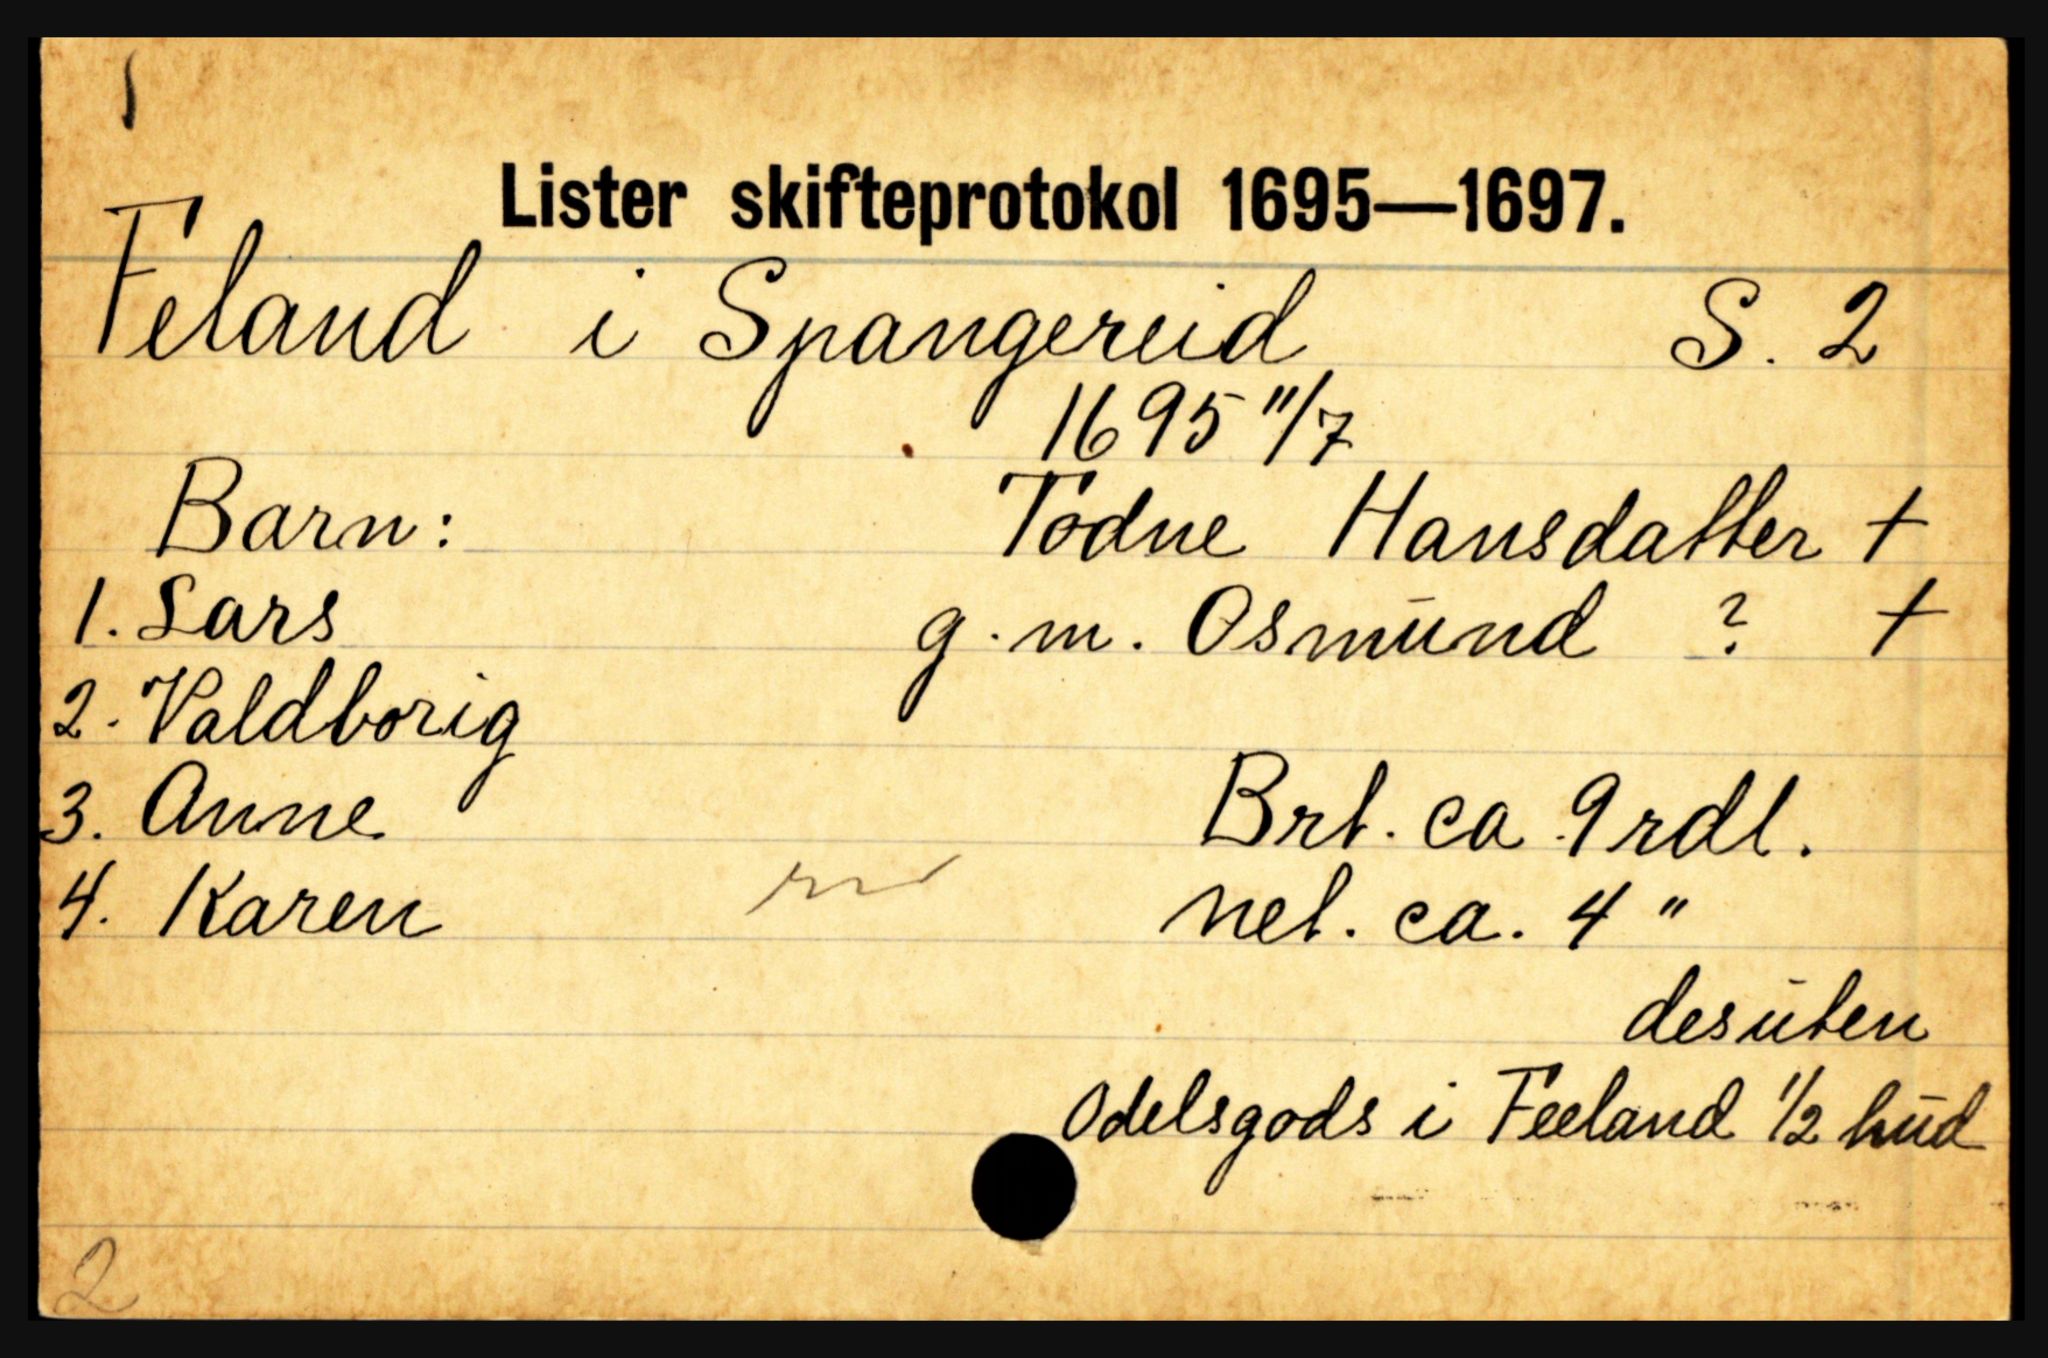 1
Lister skifteprotokol 1695—1697.
Feland i Spangereid S. 2
1695 11/7
Barn: Todne Hansdatter +
1. Lars g.m. Osmund ? +
2. Valdborig
3. Anne Brt. ca 9 rdl.
4. Karen net. ca. 4 "
desuten
Odelsgods i Feeland 1/2 hud
2